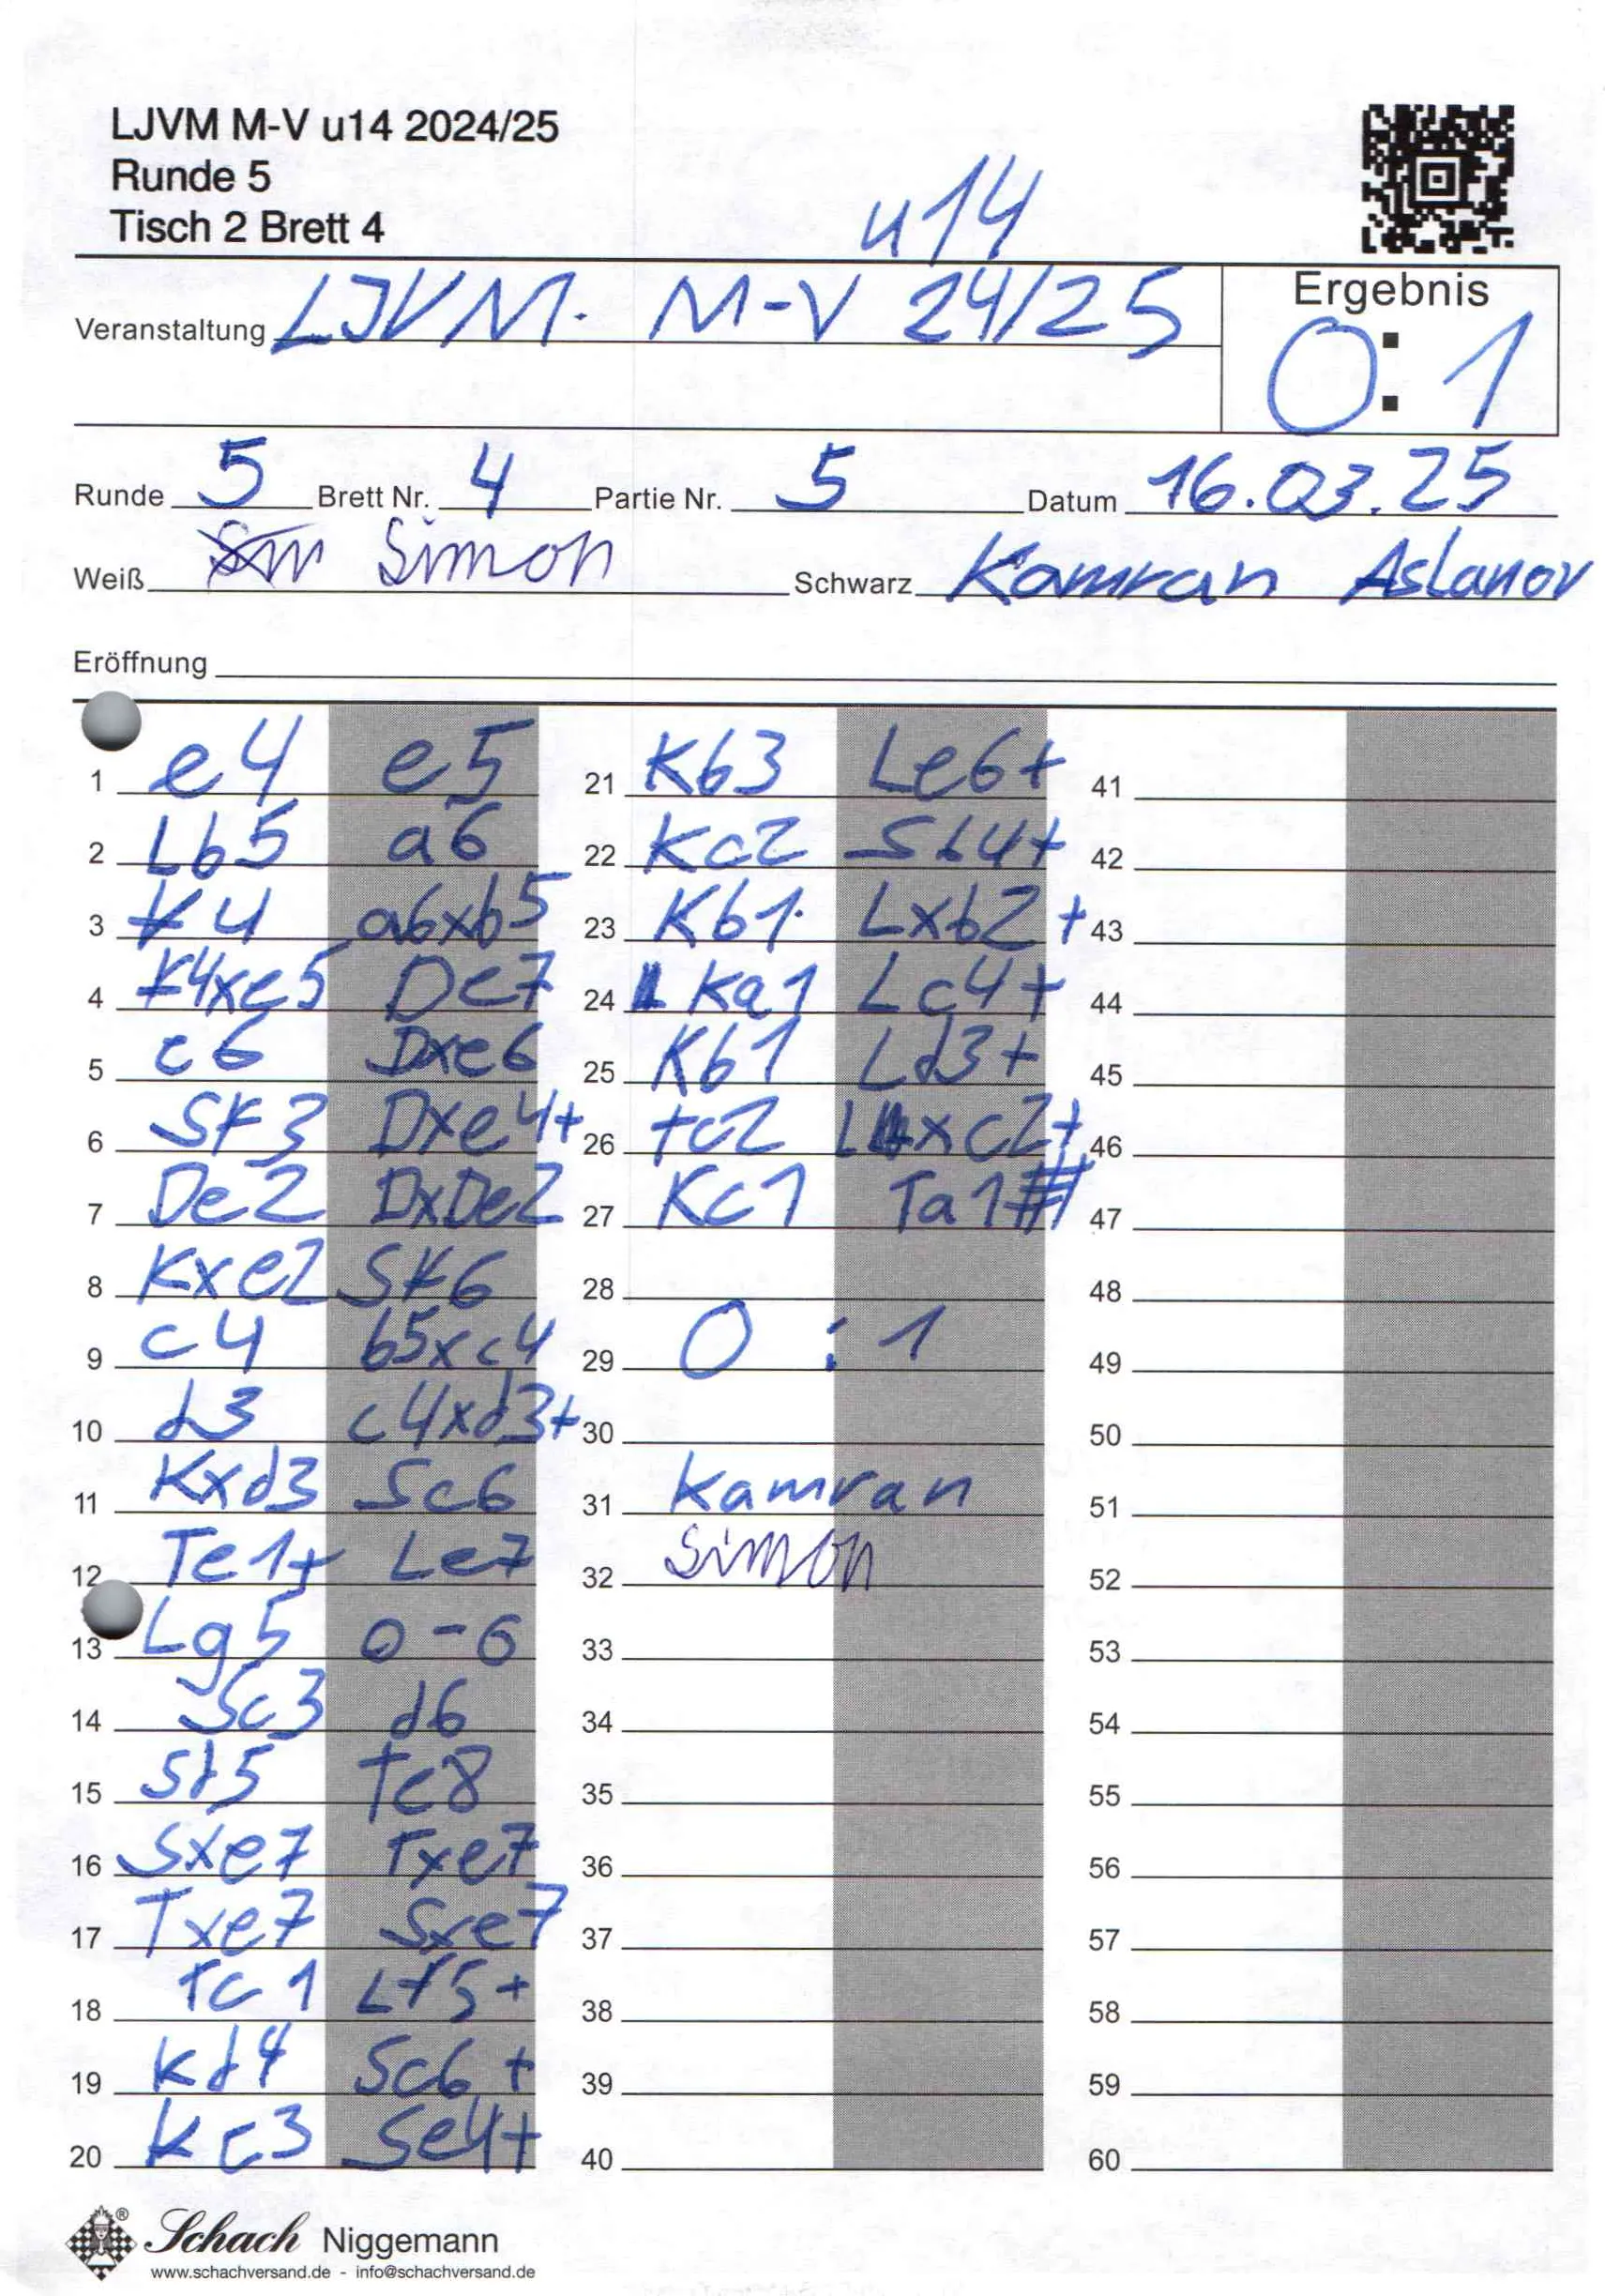 LJVM M-V u14 2024/25
Runde 5
Tisch 2 Brett 4
u14
Veranstaltung LJVM. M-V 24/25
Ergebnis
0:1
Runde 5 Brett Nr. 4 Partie Nr. 5 Datum 16.03.25
Weiß Simon Schwarz Kamran Aslanov
Eröffnung
1 e4 e5 21 Kb3 Le6+ 41
2 Lb5 a6 22 Kc2 Sb4+ 42
3 f4 a6xb5 23 Kb1 Lxb2+ 43
4 f4xe5 De7 24 Ka1 Lc4+ 44
5 e6 Dxe6 25 Kb1 Ld3+ 45
6 Sf3 Dxe4+ 26 Tc2 Lxc2+ 46
7 De2 DxDe2 27 Kc1 Ta1# 47
8 Kxe2 Sf6 28 48
9 c4 b5xc4 29 0:1 49
10 d3 c4xd3+ 30 50
11 Kxd3 Sc6 31 Kamran 51
12 Te1+ Le7 32 Simon 52
13 Lg5 0-0 33 53
14 Sc3 d6 34 54
15 Sd5 Te8 35 55
16 Sxe7 Txe7 36 56
17 Txe7 Sxe7 37 57
18 Tc1 Lf5+ 38 58
19 Kd4 Sc6+ 39 59
20 Kc3 Se4+ 40 60
Schach Niggemann
www.schachversand.de - info@schachversand.de